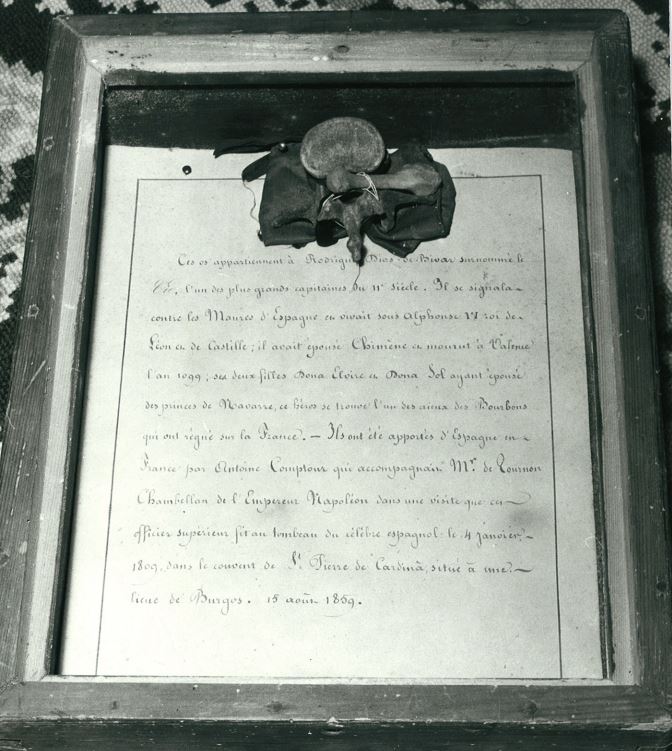 Ces os appartiennent à Rodrigue Dias de Bivar surnommé le
Cid, l'un des plus grands capitaines du 11e siècle. Il se signala
contre les Maures d'Espagne et vivait sous Alphonse VI roi de
Léon et de Castille; il avait épousé Chimène et mourut à Valence
l'an 1099; ses deux filles Dona Elvire et Dona Sol ayant épousé
des princes de Navarre, ce héros se trouve l'un des aïeux des Bourbons
qui ont régné sur la France. — Ils ont été apportés d'Espagne en
France par Antoine Comptour qui accompagnait Mr. de Tournon
Chambellan de l'Empereur Napoléon dans une visite que cet
officier supérieur fit au tombeau du célèbre espagnol le 4 janvier
1809, dans le couvent de St. Pierre de Cardinã, situé à une
lieue de Burgos. 15 août 1859.